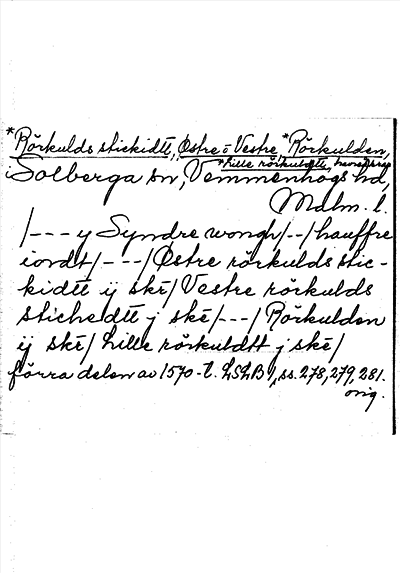 *Rörkulds stickidtt, Østre o Vestre, *Rörkulden,
*Lille rörkuldtt,
i Solberga sn, Vemmenhögs hd,
Malm. l.
/--- y Syndre wongh/--/hauffre
iordt/---/Østre rörkulds stic-
kidtt ij ske/ Vestre rörkulds
stichedtt j ske/---/Rörkulden
ij ske/ Lille rörkuldtt j ske/
förra delen av 1570-t. LSLB 1, ss. 278, 279, 281.
orig.